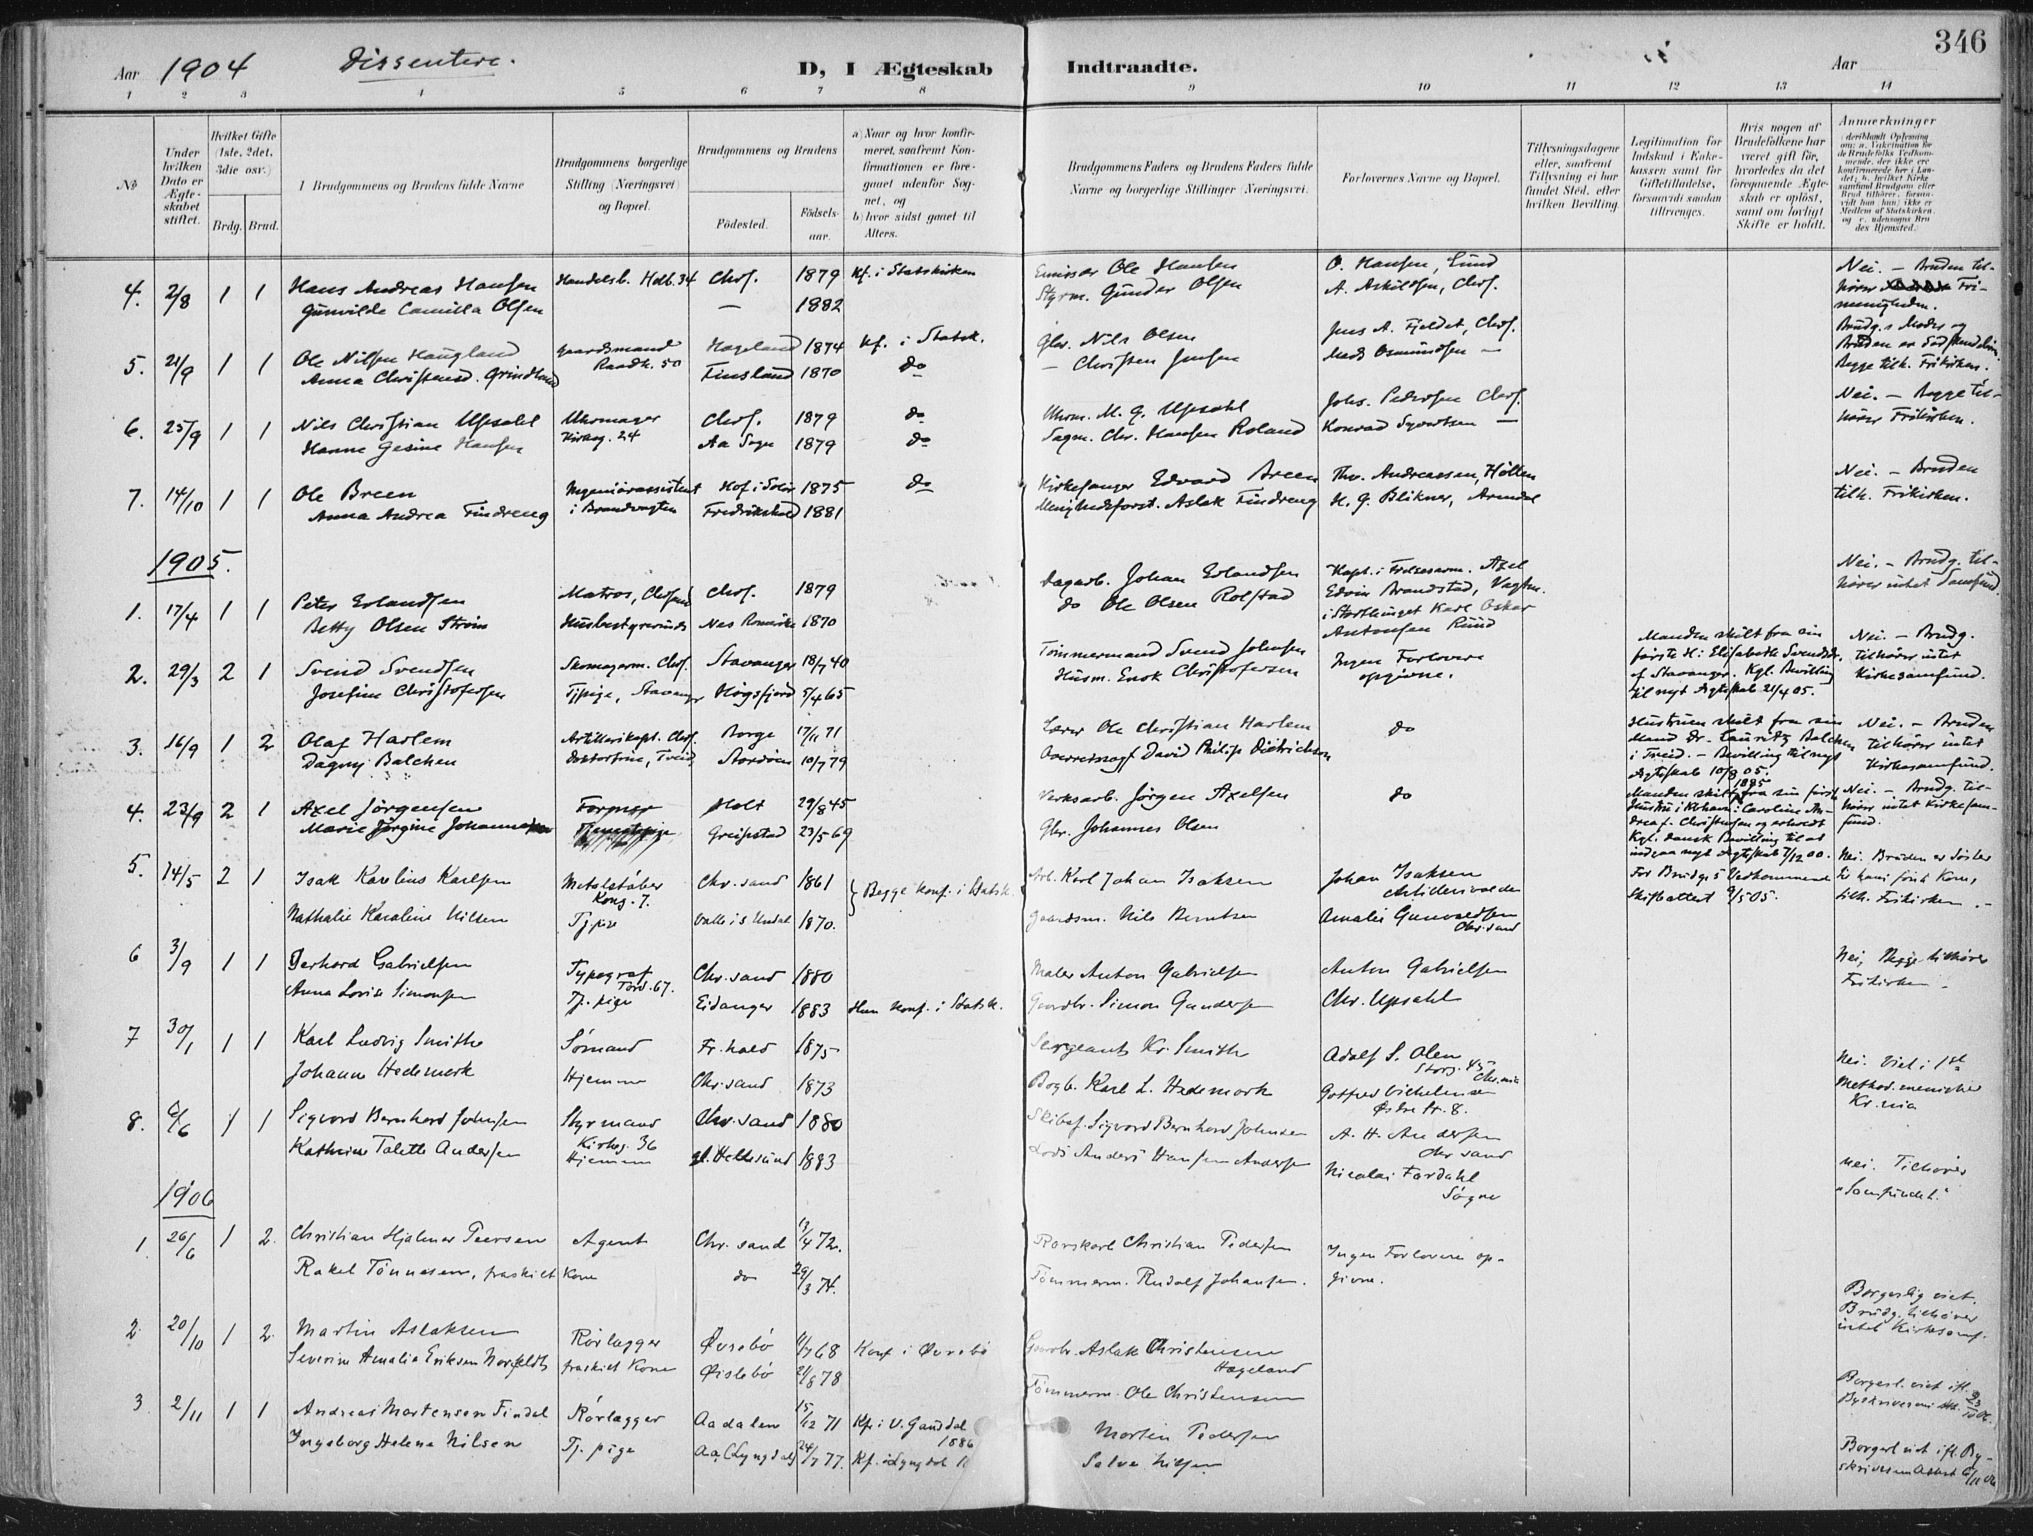 346
Aar 1904 Dissentere.
D, I Ægteskab Indtraadte.
Aar
1 2 3 4 5 6 7 8 9 10 11 12 13 14
No
Under hvilken Dato er Ægteskabet stiftet.
Hvilket Gifte (1ste, 2det, 3die osv.)
Brdg. Brud.
1 Brudgommens og Brudens fulde Navne
Brudgommens borgerlige Stilling (Næringsvei) og Bopæl.
Brudgommens og Brudens
Fødested. Fødselsaar.
a) Naar og hvor konfirmeret, saafremt Konfirmationen er foregaaet udenfor Sognet, og
b) hvor sidst gaaet til Alters.
Brudgommens Faders og Brudens Faders fulde Navne og borgerlige Stillinger (Næringsvei.
Forlovernes Navne og Bopæl.
Tillysningsdagene eller, saafremt Tillysning ei har fundet Sted, efter hvilken Bevilling.
Legitimation for Indskud i Enkekassen samt for Giftetilladelse, forsaavidt saadan tiltrænges.
Hvis nogen af Brudefolkene har været gift før, hvorledes da det foregaaende Ægteskab er opløst, samt om lovligt Skifte er holdt.
Anmærkninger
4. 2/8 1 1 Hans Andreas Hansen Handelsb. Holb. 34 Chrs. 1879 Kf. i Statskirken Emissær Ole Hansen O. Hansen, Lund Nei. — Bruden til-
Gunvilde Camilla Olsen — 1882 Styrm. Gunder Olsen A. Askildsen, Chrs. hører Fri-
menigheden.
5. 21/9 1 1 Ole Nilsen Haugland Gaardsmand Hageland 1874 Kf. i Statsk. Gbr. Nils Olsen Jens A. Fjeldet, Chrs. Brudg.s Moder og
Anna Christensd. Grindland Raadh. 50 Finsland 1870 do — Christen Jensen Mads Osmundsen — Bruden er Sødskendebørn.
Begge tilh. Frikirken.
6. 25/9 1 1 Nils Christian Upsahl Uhrmager Chrs. 1879 do Uhrm. M. G. Upsahl Johs. Pedersen Chrs. Nei. — Begge til-
Hanne Gesine Hansen Kirkeg. 24 Aa Sogn 1879 do Sagm. Chr. Hansen Roland Konrad Syvertsen — hører Frikirken.
7. 14/10 1 1 Ole Breen Ingeniørassistent Hof i Solør 1875 do Kirkesanger Edvard Breen Thv. Andreassen, Holten Nei. — Bruden
Anna Andrea Findreng i Brandvagten Fredrikshald 1881 Menighedsforst. Aslak Findreng H. G. Blikner, Arendal tilh. Frikirken.
1905.
1. 17/4 1 1 Peter Erlandsen Matros, Chrs. 1879 Dagarb. Johan Erlandsen Kapt. i Frelsesarm. Axel Nei. — Brudg. til-
Betty Olsen Strøm Husbestyrerinde Nes Romerike 1870 do Ole Olsen Rolstad Edvin Brandstad, Vagtm. hører intet Samfund.
i Storthinget Karl Oskar
Antonsen Ruud
2. 29/3 2 1 Svend Svendsen Skomagerm. Chrs. Stavanger 18/7 40 Tømmermand Svend Johnsen Ingen Forlovere Manden skilt fra sin Nei. — Brudg.
Josefine Christofersen Tjpige, Stavanger Høgsfjord 5/4 65 Husm. Enok Christofersen opgivne. første H: Elisabeth Svendsd. tilhører intet
af Stavanger. Kgl. Bevilling Kirkesamfund.
til nyt Ægteskab 21/4 05.
3. 16/9 1 2 Olaf Harlem Artillerikapt. Chrs. Borge 17/11 71 Lærer Ole Christian Harlem do Hustruen skilt fra sin Nei. — Bruden
Dagny Balchen Doktorfrue, Tveid, Stordøen 10/7 79 Overretssagf. David Philip Didrichsen Mand Dr. Lauritz Balchen tilhører intet
i Tveid. — Bevilling til nyt Kirkesamfund.
Ægteskab 10/8 05.
4. 23/9 2 1 Axel Jørgensen Former Holt 29/8 45 Verksarb. Jørgen Axelsen do Manden skilt 1895 fra sin første Nei. — Brudg. til-
Marie Jørgine Johannesen Greipstad 23/5 69 Gbr. Johannes Olsen Hustru i Kbhavn: Caroline An- hører intet Kirkesam-
dreaf. Christensen og erholdt fund.
Kgl. dansk Bevilling til at
indgaa nyt Ægteskab 7/12 00.
5. 14/5 2 1 Isak Karelius Karlsen Metalstøber Chr.sand 1861 } Begge konf. i Statsk. Arb. Karl Johan Isaksen Johan Isaksen For Brudg.s Vedkommende Nei. Bruden er Søster
Kong. 7. Artillerivolden Skifteattest 9/5 05. til hans første Kone,
Nathalie Karoline Nilsen Tj.pige Valle i S. Undal 1870. Gaardsm. Nils Berntsen Amalie Gunvaldsen tilh. Frikirken.
Chr.sand
6 3/9 1 1 Gerhard Gabrielsen Typograf Chr.sand 1880 Maler Anton Gabrielsen Anton Gabrielsen Nei, Begge tilhører
Tord. 67.
Anna Lovise Simonsen Tj. pige Eidanger 1883 Hun konf. i Statsk. Gaardbr. Simon Gundersen Chr. Upsahl Frikirken.
7 30/1 1 1 Karl Ludvig Smith Sømand Fr.hald 1875 Sergeant Kr. Smith Adolf S. Olsen Nei. Viet i 1ste
Storg. 45 Chr.nia Method.menighed
Johanne Hedemark Hjemme Chr.sand 1873 Bogb. Karl L. Hedemark Gotfred Vilhelmsen Kr.nia
Østre Str. 8.
8. 6/6 1 1 Sigvard Bernhard Johnsen Styrmand Chr.sand 1880 Skibsf. Sigvard Bernhard Johnsen A. H. Andersen
Kirkeg. 36 Chr sand
Kathrine Talette Andersen Hjemme gl. Hellesund 1883 Lods Anders Hansen Andersen Nicolai Fardahl Nei. Tilhører
Søgne „Samfundet."
1906
1. 26/6 1 2. Christian Hjalmar Peersen Agent Chr. sand 13/4 72. Rorskarl Christian Pedersen Ingen Forlovere op-
Rakel Tønnesen, fraskilt Kone do 29/3 74. Tømmerm. Rudolf Johansen. givne.
Borgerlig viet.
Brudg. tilhører
intet Kirkesamf.
2. 20/10 1 2. Martin Aslaksen Rørlægger Øvrebø 4/7 68 Konf i Øvrebø Gaardbr. Aslak Christensen
Hægeland
Severine Amalie Eriksen Norfeldt fraskilt Kone Øislebø 21/8 78 Tømmerm. Ole Christensen Borgerl. viet ifl.
3 2/11 1 1 Andreas Mortensen Findal Rørlægger Aadalen 15/12 71 Kf. i V. Gausdal 1886 Morten Pedersen
Ingeborg Helene Nilsen Tj. pige Aa, (Lyngdal) 24/7 77. Kf. i Lyngdal Salve Nilsen Borgerl. viet ifl. By-
skriverens Attest 6/11 06